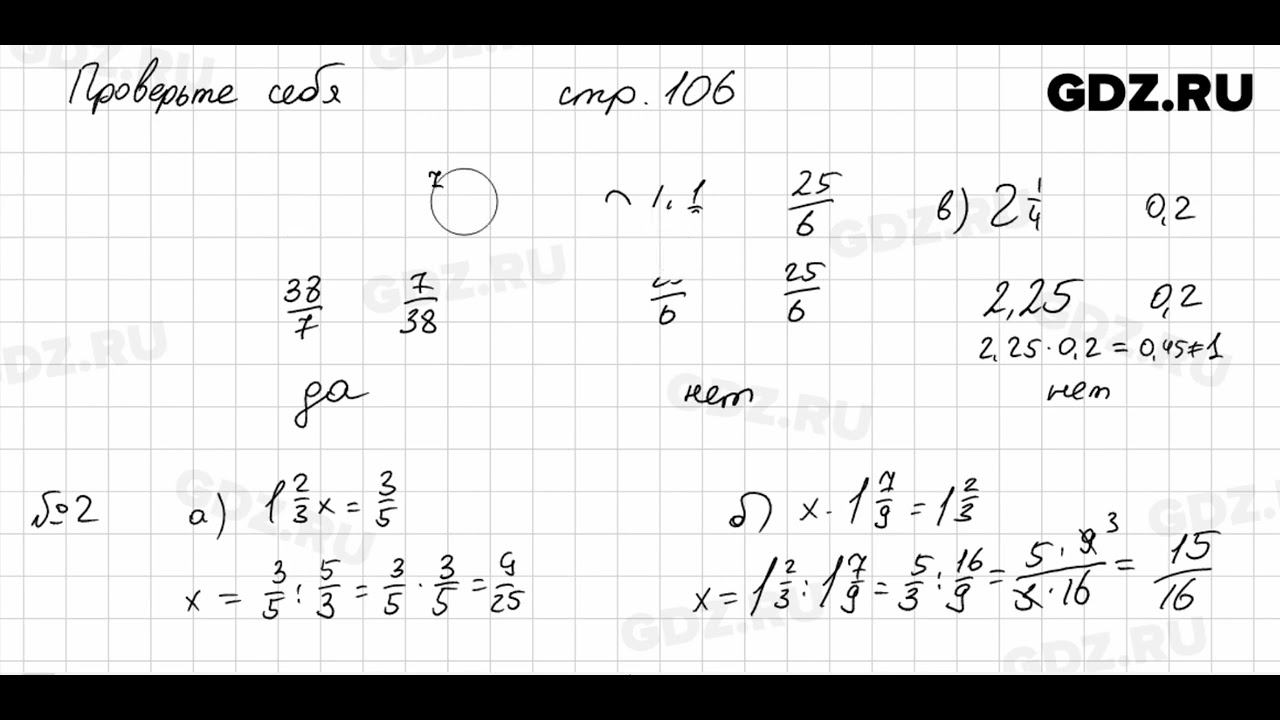 Проверьте себя стр. 106 GDZ.RU
7 25/6 в) 2 1/4 0,2
38/7 7/38 /6 25/6 2,25 0,2
2,25 · 0,2 = 0,45 ≠ 1
да нет нет
№2 а) 1 2/3 x = 3/5 б) x · 1 7/9 = 1 2/3
x = 3/5 : 5/3 = 3/5 · 3/5 = 9/25 x = 1 2/3 : 1 7/9 = 5/3 : 16/9 = 5 · 9 3/3 · 16 = 15/16